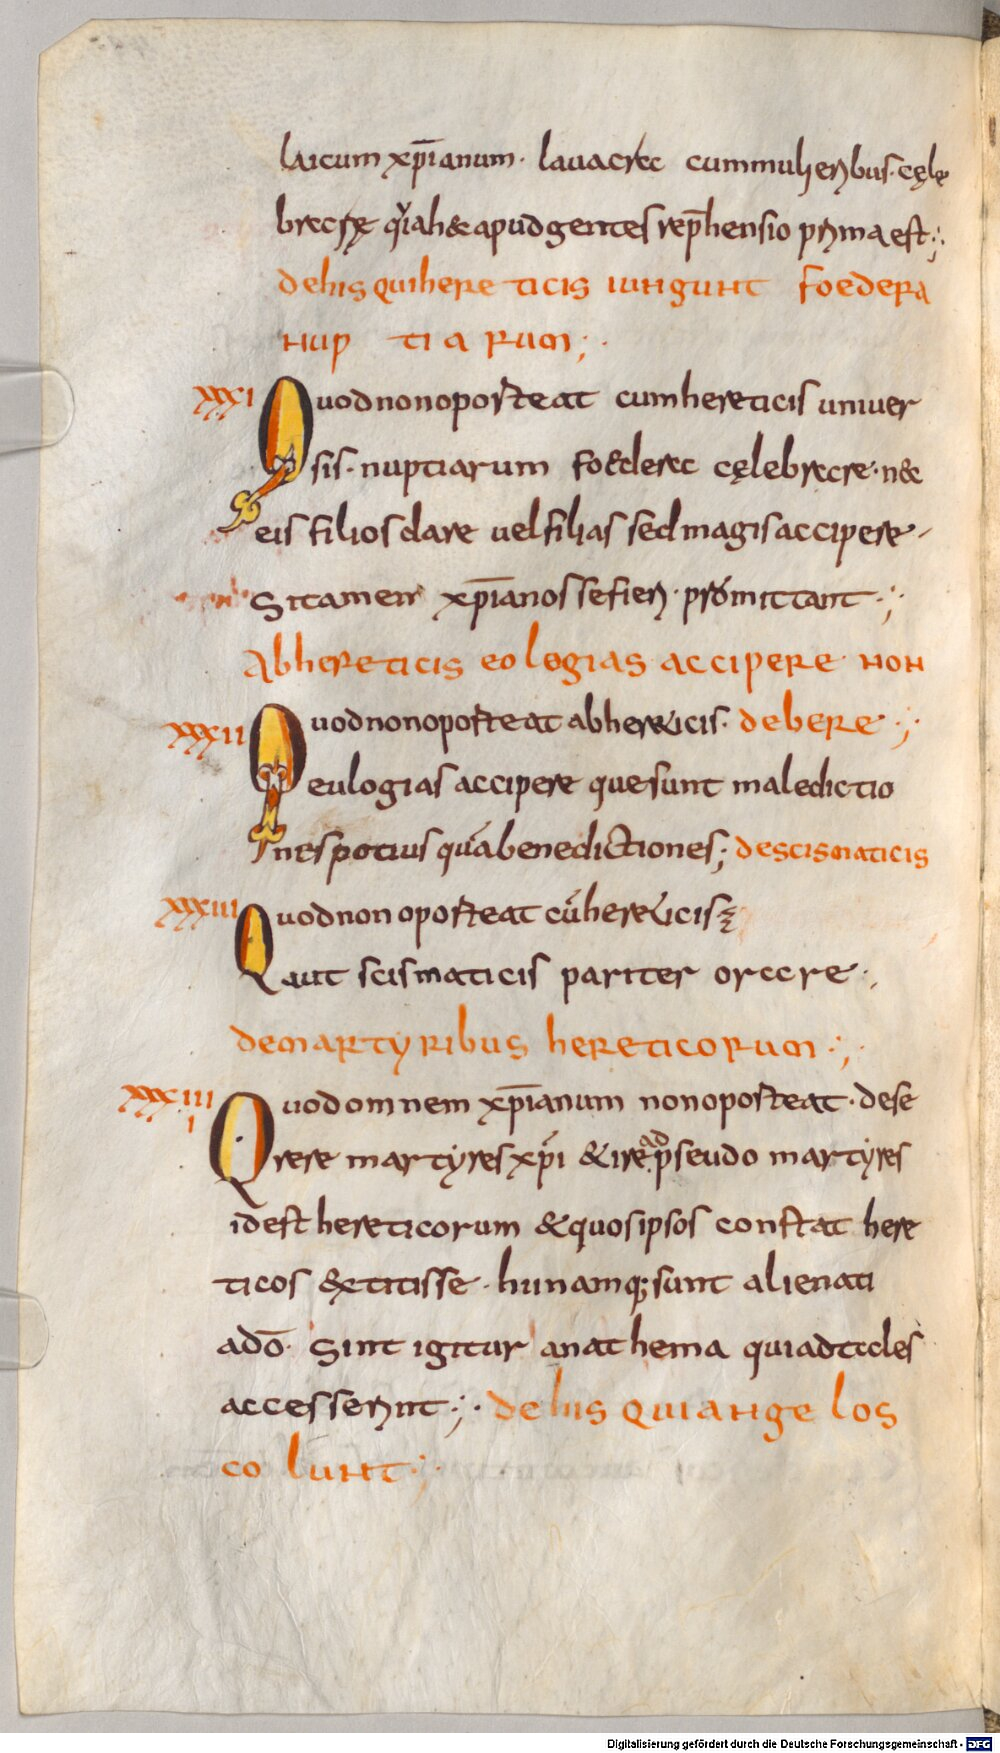 laicum xp̄ianum· lauacra cum mulieribus· cęle
brare quia h& apud gentes rep̄hensio prima est·;
de his qui hereticis iungunt foedera
nuptiarum;·
XXXI Quod non oporteat cum hereticis uniuer
sis· nuptiarum foedera cęlebrare· n&
eis filios dare uel filias sed magis accipere·
Si tamen xp̄ianos se fieri· promittant·;
Ab hereticis eologias accipere non
XXXII Quod non oporteat ab hereticis· debere·;
eulogias accipere que sunt maledictio
nes potius quā benedictiones; de scismaticis
XXXIII Quod non oporteat cū hereticis
aut scismaticis pariter orare·,
de martyribus hereticorum·;
XXXIIII Quod omnem xp̄ianum non oporteat· dese
rere martyres xp̄i & ire ad pseudo martyres
id est hereticorum & quos ipsos constat here
ticos &titisse· hii namq; sunt alienati
a dō· Sint igitur anathema qui ad tales
accesserint·;· de his qui angelos
colunt·;